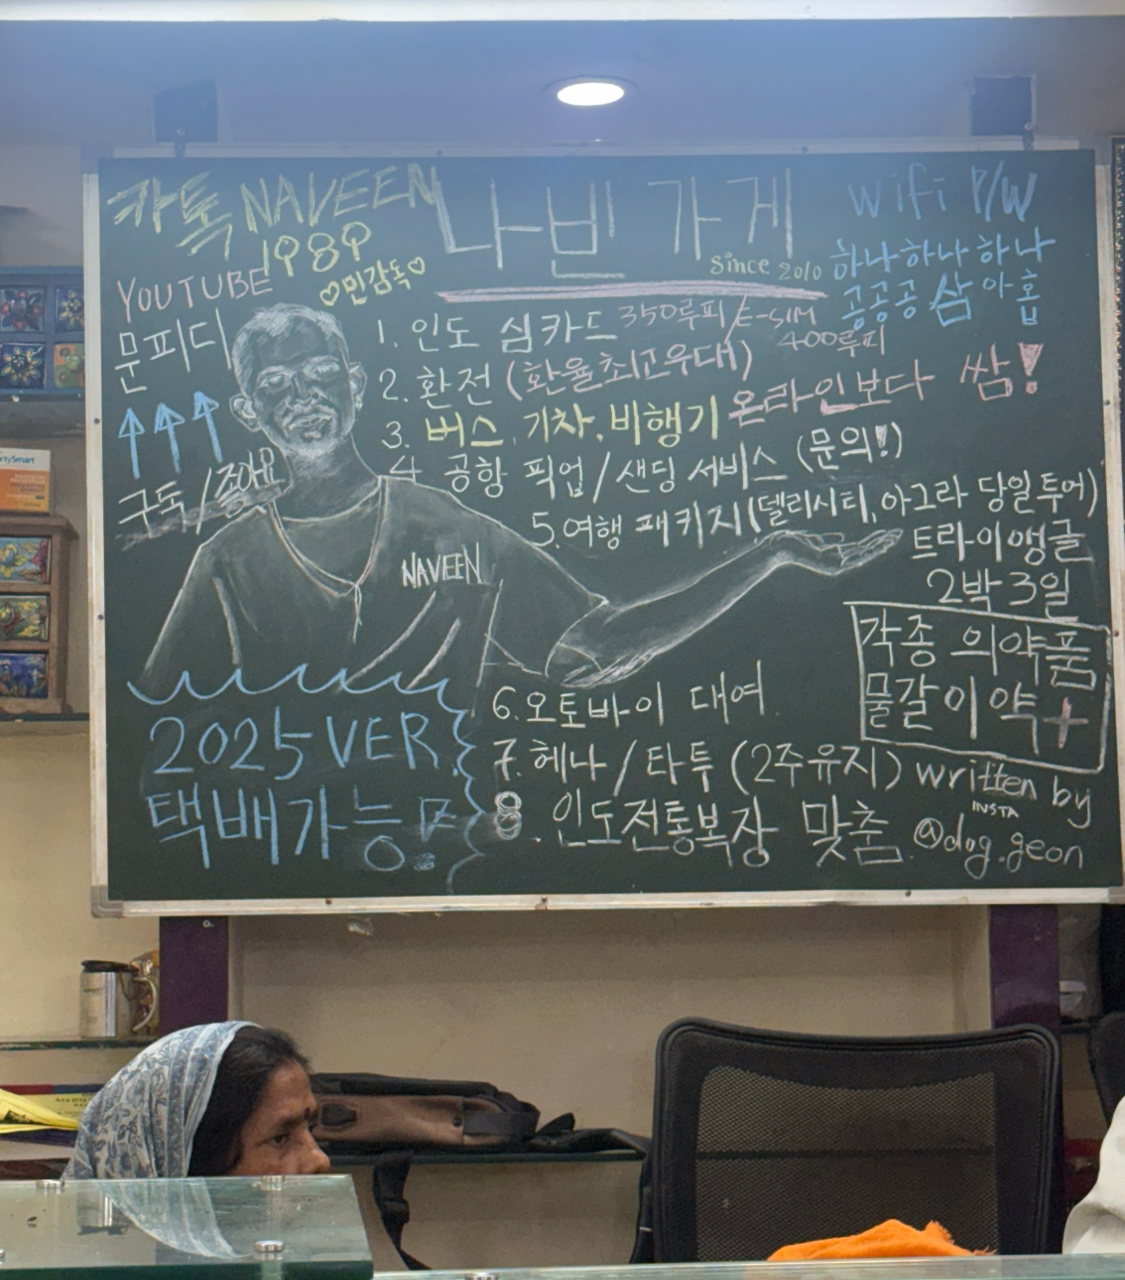 카톡 NAVEEN
1989
♡민감독♡
나빈 가게
Since 2010
Wifi P/W
하나하나하나
공공공 삼 아홉
YOUTUBE
문피디
↑↑↑
구독/좋아요
1. 인도 심카드 350루피/E-SIM
400루피
2. 환전 (환율최고우대)
3. 버스, 기차, 비행기 온라인보다 쌈!
4 공항 픽업/샌딩 서비스 (문의!)
5. 여행 패키지(델리시티, 아그라 당일투어)
트라이앵글
2박 3일
NAVEEN
각종 의약품
물갈이 약 +
6. 오토바이 대여
7. 헤나/타투 (2주유지)
8. 인도전통복장 맞춤
2025 VER.
택배가능!
written by
INSTA
@dog.geon